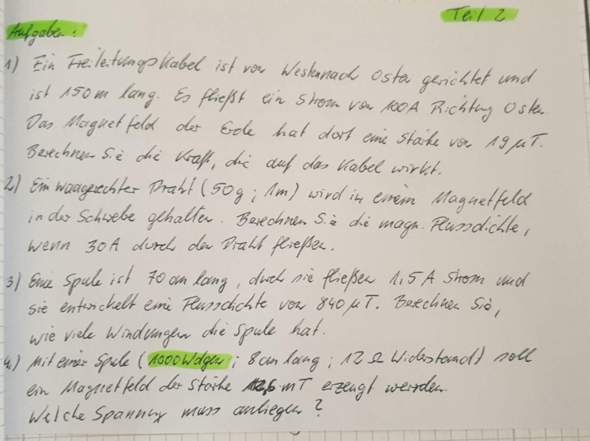 Teil 2
Aufgaben:
1) Ein Freileitungskabel ist von Westen nach Osten gerichtet und
ist 150m lang. Es fließt ein Strom von 100A Richtung Osten.
Das Magnetfeld der Erde hat dort eine Stärke von 19 µT.
Berechnen Sie die Kraft, die auf das Kabel wirkt.
2) Ein waagerechter Draht (50g ; 1m) wird in einem Magnetfeld
in der Schwebe gehalten. Berechnen Sie die magn. Flussdichte,
wenn 30A durch den Draht fließen.
3) Eine Spule ist 70 cm lang, durch sie fließen 1,5 A Strom und
sie entwickelt eine Flussdichte von 840 µT. Berechnen Sie,
wie viele Windungen die Spule hat.
4.) Mit einer Spule (1000 Wdgen ; 8cm lang ; 12 Ω Widerstand) soll
ein Magnetfeld der Stärke mT erzeugt werden.
Welche Spannung muss anliegen?